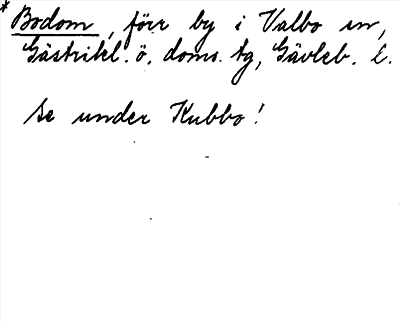 *Bodom, förr by i Valbo sn,
Gästrikl. ö. doms. tg, Gävleb. L.
se under Kubbo!